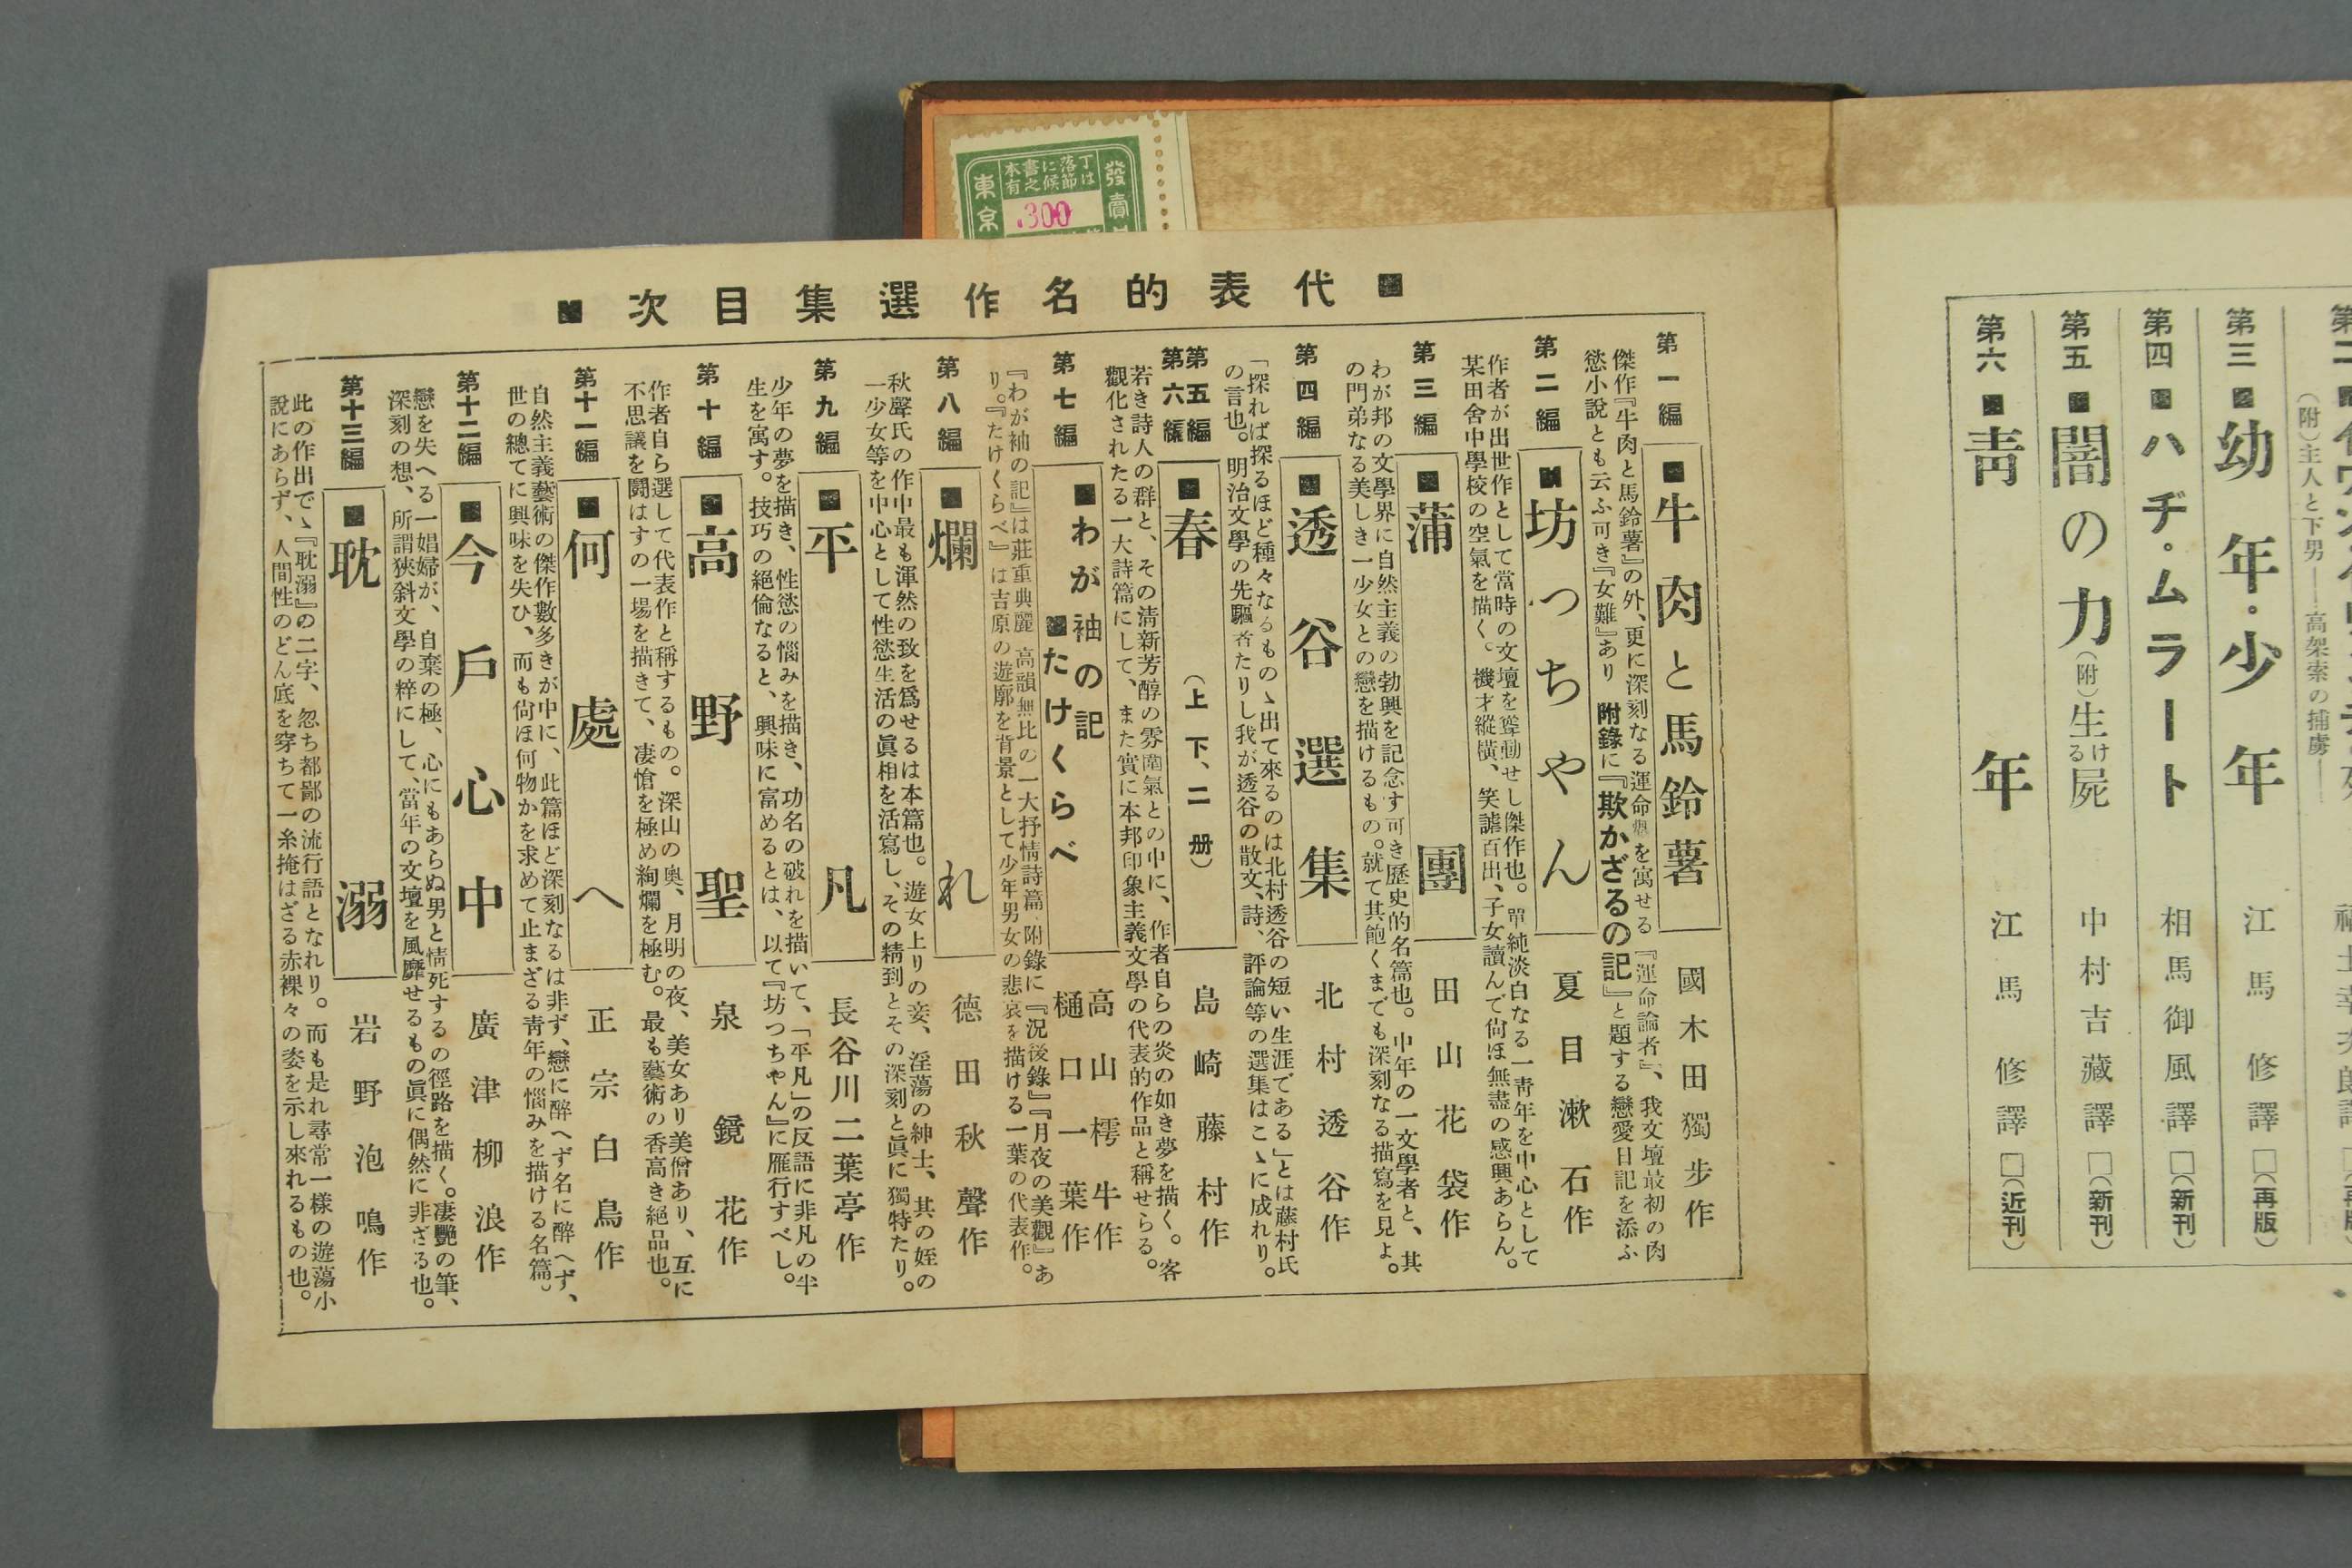 ■代表的名作選集目次■
第一編
■牛肉と馬鈴薯
國木田獨步作
傑作『牛肉と馬鈴薯』の外、更に深刻なる運命を寓せる『運命論者』、我文壇最初の肉
慾小說とも云ふ可き『女難』あり 附錄に『欺かざるの記』と題する戀愛日記を添ふ
第二編
■坊つちやん
夏目漱石作
作者が出世作として當時の文壇を聳動せし傑作也。單純淡白なる一靑年を中心として
某田舍中學校の空氣を描く。機才縱橫、笑謔百出、子女讀んで尙ほ無盡の感興あらん。
第三編
■蒲團
田山花袋作
わが邦の文學界に自然主義の勃興を記念す可き歷史的名篇也。中年の一文學者と、其
の門弟なる美しき一少女との戀を描けるもの。就て其飽くまでも深刻なる描寫を見よ。
第四編
■透谷選集
北村透谷作
「探れば探るほど種々なるものゝ出て來るのは北村透谷の短い生涯である」とは藤村氏
の言也。明治文學の先驅者たりし我が透谷の散文、詩、評論等の選集はこゝに成れり。
第五編
第六編
■春(上下、二册)
島崎藤村作
若き詩人の群と、その淸新芳醇の雰圍氣との中に、作者自らの炎の如き夢を描く。客
觀化されたる一大詩篇にして、また實に本邦印象主義文學の代表的作品と稱せらる。
第七編
■わが袖の記
■たけくらべ
高山樗牛作
樋口一葉作
『わが袖の記』は莊重典麗 高韻無比の一大抒情詩篇、附錄に『況後錄』『月夜の美觀』あ
り。『たけくらべ』は吉原の遊廓を背景として少年男女の悲哀を描ける一葉の代表作。
第八編
■爛れ
德田秋聲作
秋聲氏の作中最も渾然の致を爲せるは本篇也。遊女上りの妾、淫蕩の紳士、其の姪の
一少女等を中心として性慾生活の眞相を活寫し、その精到とその深刻と眞に獨特たり。
第九編
■平凡
長谷川二葉亭作
少年の夢を描き、性慾の惱みを描き、功名の破れを描いて、「平凡」の反語に非凡の半
生を寓す。技巧の絕倫なると、興味に富めるとは、以て『坊つちやん』に雁行すべし。
第十編
■高野聖
泉鏡花作
作者自ら選して代表作と稱するもの。深山の奧、月明の夜、美女あり美僧あり、互に
不思議を鬪はすの一場を描きて、凄愴を極め絢爛を極む。最も藝術の香高き絕品也。
第十一編
■何處へ
正宗白鳥作
自然主義藝術の傑作數多きが中に、此篇ほど深刻なるは非ず、戀に醉へず名に醉へず、
世の總てに興味を失ひ、而も尙ほ何物かを求めて止まざる靑年の惱みを描ける名篇。
第十二編
■今戶心中
廣津柳浪作
戀を失へる一娼婦が、自棄の極、心にもあらぬ男と情死するの徑路を描く。凄艷の筆、
深刻の想、所謂狹斜文學の粹にして、當年の文壇を風靡せるもの眞に偶然に非ざる也。
第十三編
■耽溺
岩野泡鳴作
此の作出で、『耽溺』の二字、忽ち都鄙の流行語となれり。而も是れ尋常一樣の遊蕩小
說にあらず、人間性のどん底を穿ちて一糸掩はざる赤裸々の姿を示し來れるもの也。
發賣
本書に落丁は
有之候節は
東京
.300
(附)主人と下男——高架索の捕虜——
第三■幼年・少年 江馬修譯□(再版)
第四■ハヂ・ムラート 相馬御風譯□(新刊)
第五■闇の力(附)生ける屍 中村吉藏譯□(新刊)
第六■靑年 江馬修譯□(近刊)